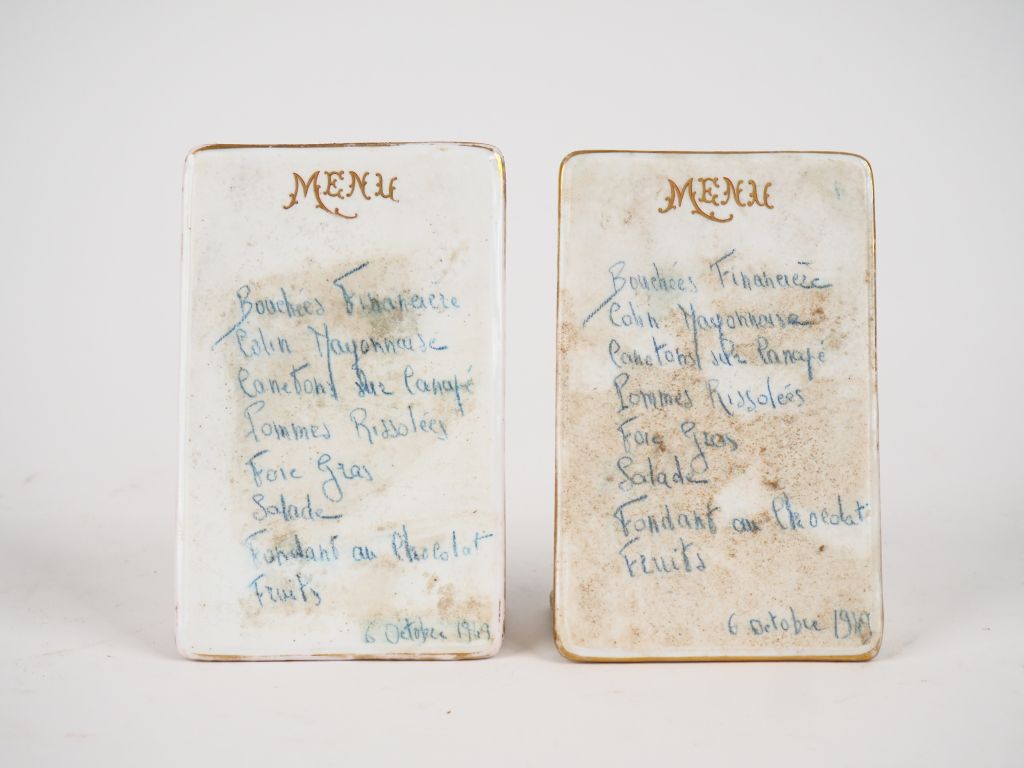 MENU
Bouchées Financière
Colin Mayonnaise
Canetons sur Canapé
Pommes Rissolées
Foie Gras
Salade
Fondant au Chocolat
Fruits
6 Octobre 1949
MENU
Bouchées Financière
Colin Mayonnaise
Canetons sur Canapé
Pommes Rissolées
Foie Gras
Salade
Fondant au Chocolat
Fruits
6 Octobre 1949